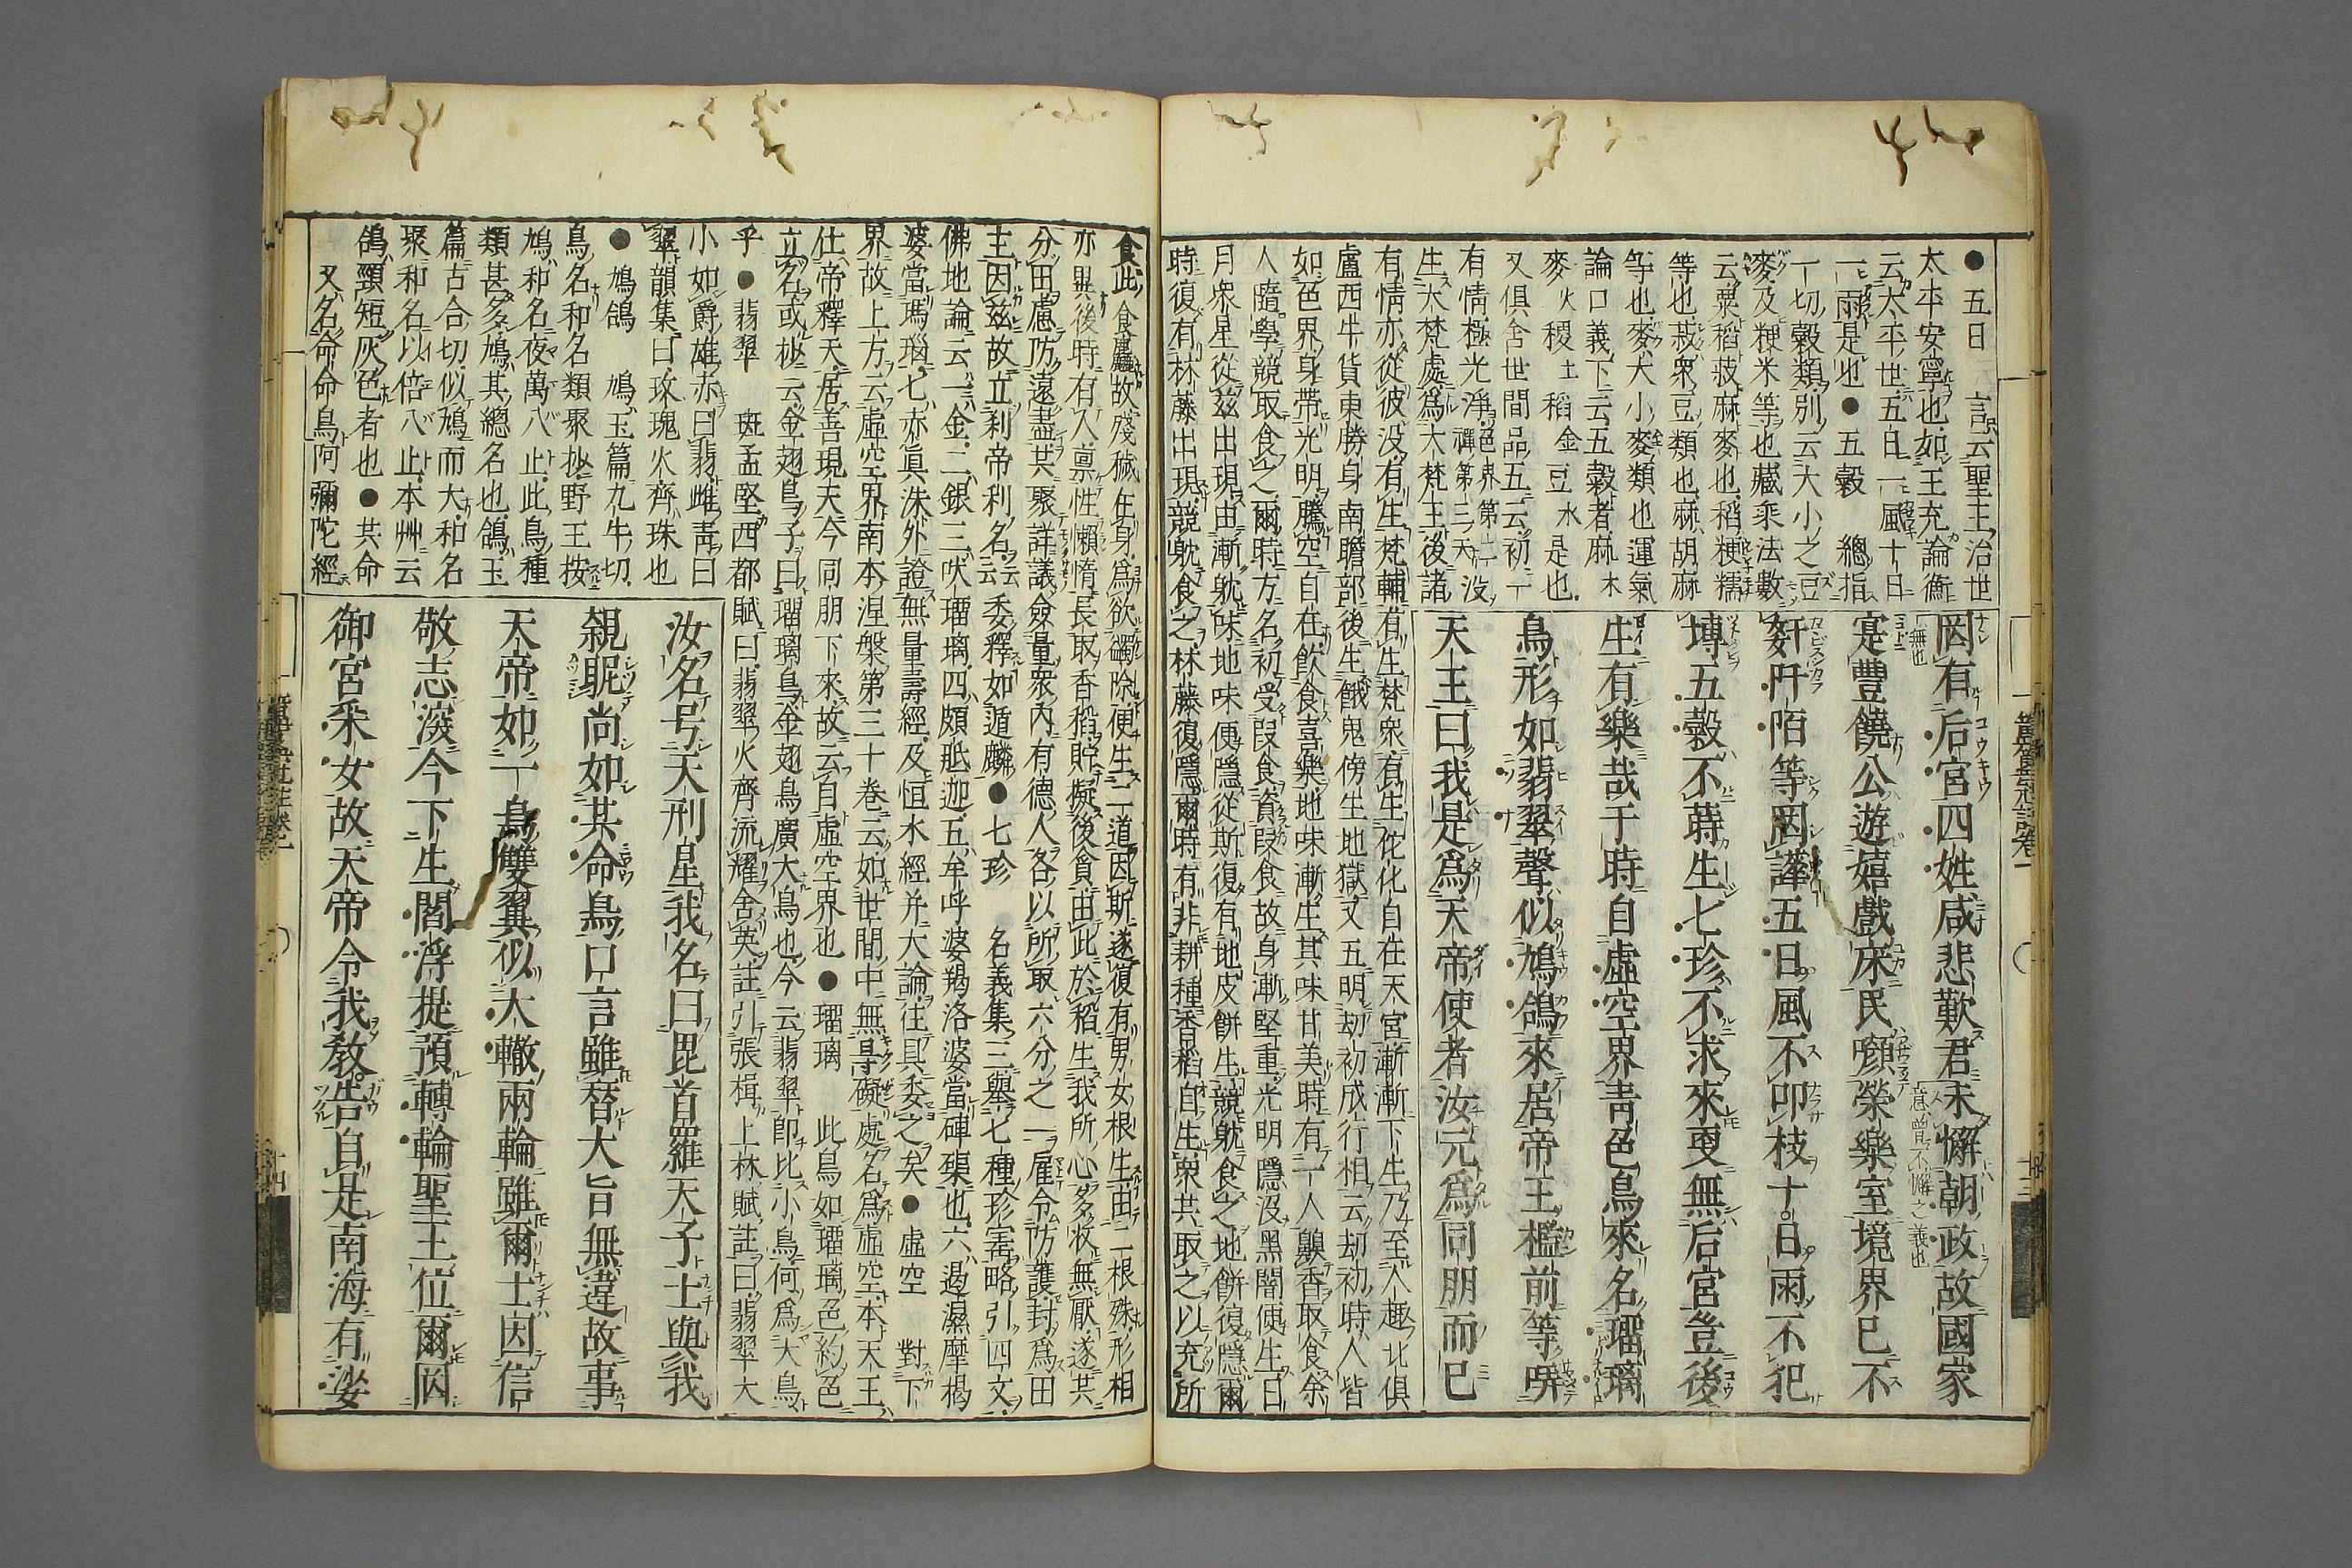 ●五日 言云聖王治世
太平安寧也如王充論衡
云太平世五日一風十日
一雨是也●五穀 總指
一切穀類別云大小之豆
麥及粳米等也藏乘法數
云粟稻菽麻麥也稻粳糯
等也菽衆豆類也麻胡麻
等也麥大小麥類也運氣
論口義下云五穀者麻木
麥火稷土稻金豆水是也
又俱舍世間品五云初一
有情極光淨色界第二禪第三天没
生大梵處爲大梵王後諸
有情亦從彼没有生梵輔有生梵衆有生佗化自在天宮漸漸下生乃至人趣北俱
盧西牛貨東勝身南贍部後生餓鬼傍生地獄又五明劫初成行相云劫初時人皆
如色界身帶光明騰空自在飲食喜樂地味漸生其味甘美時有一人齅香取食余
人隨學競取食之爾時方名初受段食資段食故身漸堅重光明隱没黑闇便生日
月衆星從茲出現由漸躭味地味便隱從斯復有地皮餅生競躭食之地餅復隱爾
時復有林藤出現競躭食之林藤復隱爾時有非耕種香稻自生衆共取之以充所
有后宮四姓咸悲歎君未懈朝政故國家
寔豐饒公遊嬉戲床民顔榮樂室境界已不
奸阡陌等因譁五日風不叩枝十日雨不犯
塼五穀不蒔生七珍不求來更無后宮登後
生有樂哉于時自虛空界靑色鳥來名瑠璃
鳥形如翡翠聲似鳩鴿來居帝王檻前等哢
天王曰我是爲天帝使者汝元爲同朋而已
食此食麤故殘穢在身爲欲蠲除便生二道因斯遂復有男女根生由二根殊形相
亦異後時有人禀性懶惰長取香稻貯擬後食由此於稻生我所心多收無厭遂共
分田慮防遠盡共聚詳議僉量衆內有德人各以所取六分之一雇令防護封爲田
主因茲故立刹帝利名云委釋如遁麟●七珍 名義集三舉七種珍寶略引四文
佛地論云一金二銀三吠瑠璃四頗胝迦五牟呼婆羯洛婆當硨磲也六遏濕摩揭
婆當瑪瑙七赤眞洙外證無量壽經及恒水經并大論往具委之矣●虛空 對下
界故上方云虛空界南本涅槃第三十卷云如世間中無尋礙處名爲虛空本天王
仕帝釋天居善現天今同朋下來故云自虛空界也●瑠璃 此鳥如瑠璃色約色
立名或抄云金翅鳥子曰瑠璃鳥金翅鳥廣大鳥也今云翡翠卽比小鳥何爲大鳥
乎●翡翠 班孟堅西都賦曰翡翠火齊流耀含英註引張楫上林賦註曰翡翠大
小如爵雄赤曰翡雌靑曰
翠韻集曰玫瑰火齊珠也
●鳩鴿 鳩玉篇九牛切
鳥名和名類聚抄野王按
鳩和名夜萬八止此鳥種
類甚多鳩其總名也鴿玉
篇古合切似鳩而大和名
聚和名以倍八止本艸云
鴿頸短灰色者也●共命
又名命命鳥阿彌陀經
汝名号天刑星我名曰毘首羅天子士與我
親昵尚如其命鳥口言雖替大旨無違故事
天帝如一鳥雙翼似大轍兩輪雖爾士因信
敬志深今下生閻浮提預轉輪聖王位爾因
御宮釆女故天帝令我敎告自是南海有娑